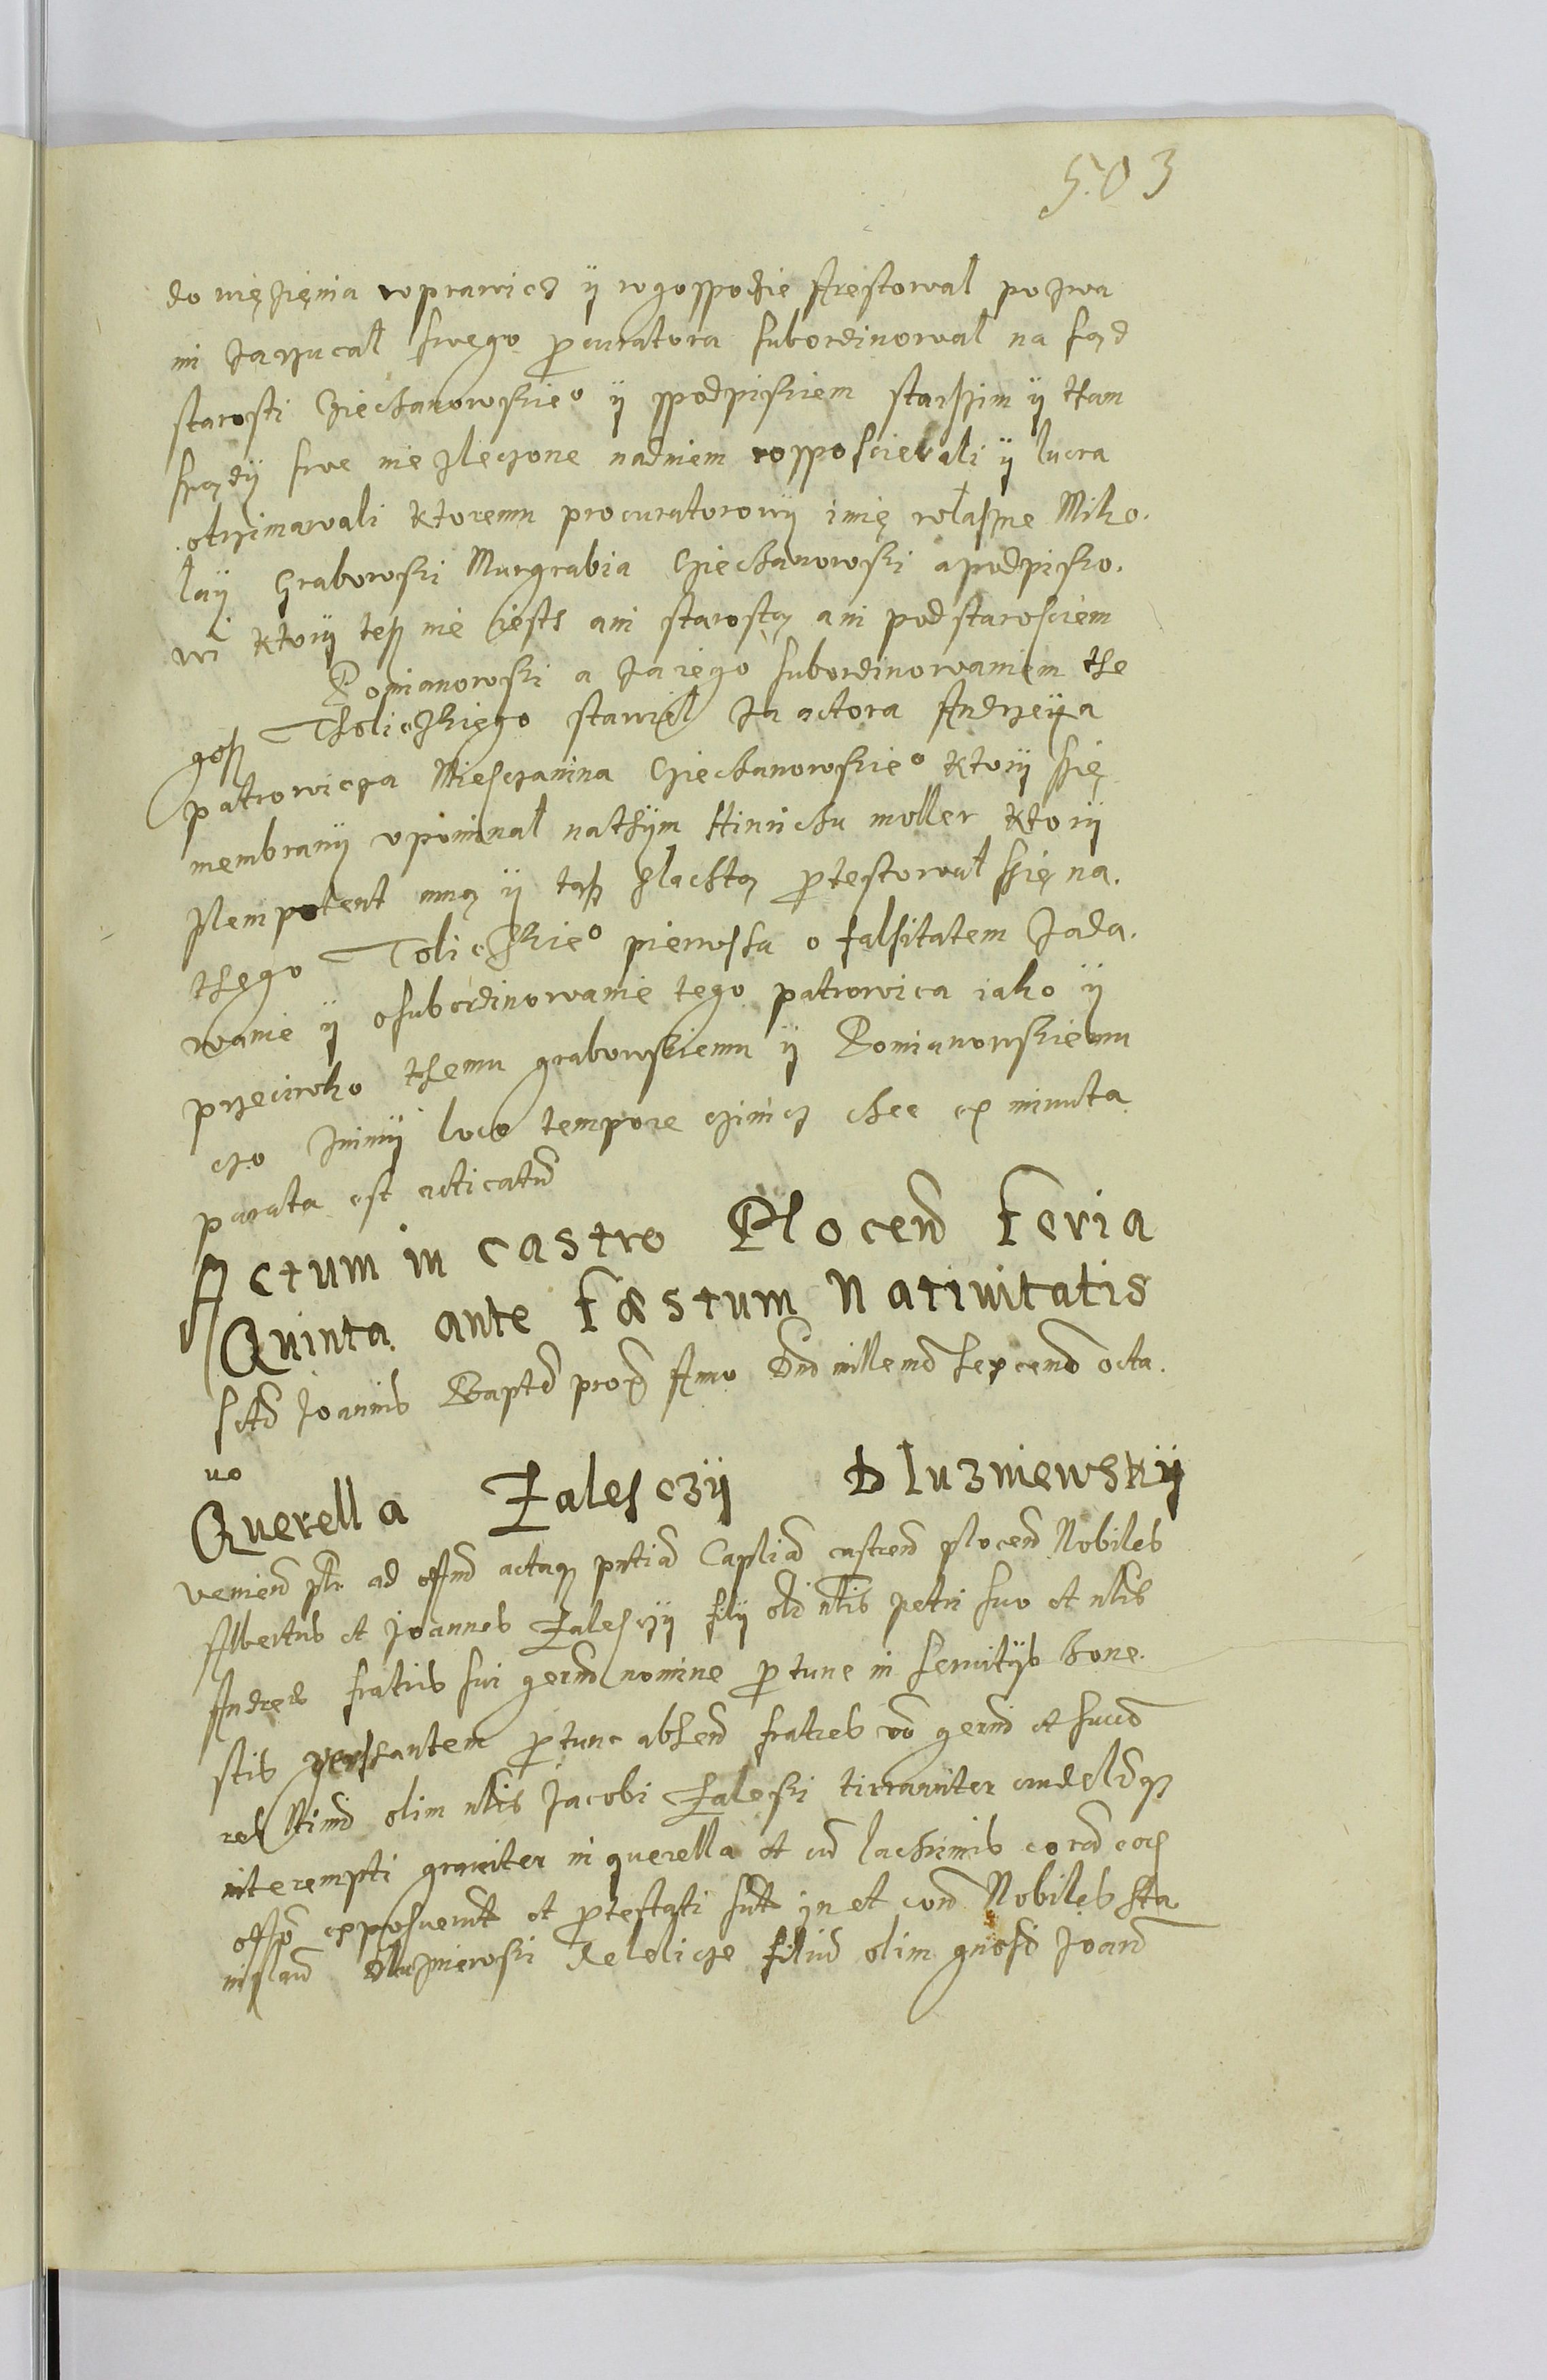 503
do więzięnia wprawics y wgosspodzie Arestowal pozwa
mi zarzucał swego procuratora subordinowal na sąd
starosti Cziechanowskieo y sspodpiskiem starszim y tham
sządy swe nie zleczone nadniem rosposcierali y lucra
otrzimawali ktoremu procuratorowy imię własne Miko.
lay Grabowski Murgrabia Cziechanowski apodpisko.
wi ktory tesz nie iesth ani starostą ani podstarosciem
Pomianowski a zaiego subordinowaniem the
gosz Tholiczkiego stawiel za actora Andrzeya
patrowicza Miesczanina Cziechanowskieo ktory szię
membrany upominal nathym Hinrichu moller ktory
plempotent mną y tąsz slachtą protestowal szię na.
thego Toliczkieo pierwsza o falsitatem zada.
wanie y osubordinowanie tego patrowica iako y
przeciwko themu grabowskiemu y Pomianowskiemu
czo Inimy loco tempore czinicz chce ex minuta
parata est acticatum
Actum in castro Plocen Feria
Quinta ante Fæstum Nativitatis
Scti Joannis Bapte prox Anno Dni millemo sexcento octa.
uo
Querella Zalesczy Dluzniewsky
Venien ptr ad offm actaq pntia Capllia castren plocen Nobiles
Albertus et Joannes Zalesczy fily oli nlis petri suo et nlis
Andreæ fratris sui germ nomine protunc in seruitys hone.
stis versantem protunc absen fratres germ et succ
olim nlis Jacobi Zaleski tirranniter crudelq
interempti grauiter in querella et cu lachrimis cora
offo exposuerunt et protestati sunt in et con Nobiles Sta
nislau Dluzniewski Lelelicze filiu olim gnosi Joan